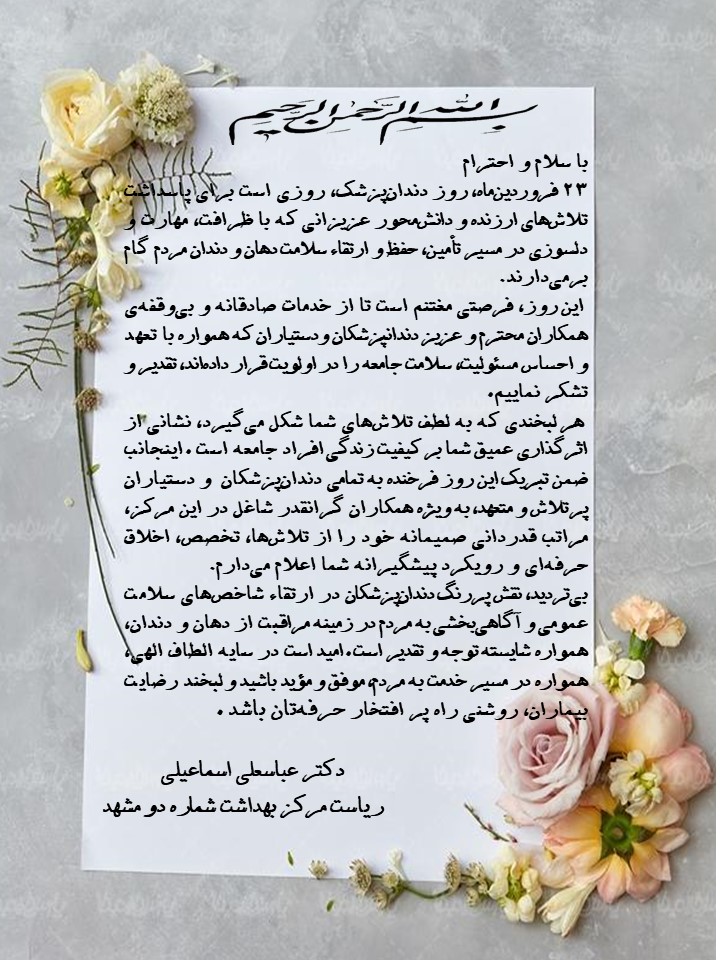 بسم الله الرحمن الرحیم
با سلام و احترام
۲۳ فروردین‌ماه، روز دندان‌پزشک، روزی است برای پاسداشت
تلاش‌های ارزنده و دانش‌محور عزیزانی که با ظرافت، مهارت و
دلسوزی در مسیر تأمین، حفظ و ارتقاء سلامت دهان و دندان مردم گام
برمی‌دارند.
این روز، فرصتی مغتنم است تا از خدمات صادقانه و بی‌وقفه‌ی
همکاران محترم و عزیز دندانپزشکان و دستیاران که همواره با تعهد
و احساس مسئولیت، سلامت جامعه را در اولویت قرار داده‌اند، تقدیر و
تشکر نماییم.
هر لبخندی که به لطف تلاش‌های شما شکل می‌گیرد، نشانی از
اثرگذاری عمیق شما بر کیفیت زندگی افراد جامعه است . اینجانب
ضمن تبریک این روز فرخنده به تمامی دندان‌پزشکان و دستیاران
پرتلاش و متعهد، به‌ویژه همکاران گرانقدر شاغل در این مرکز،
مراتب قدردانی صمیمانه خود را از تلاش‌ها، تخصص، اخلاق
حرفه‌ای و رویکرد پیشگیرانه شما اعلام می‌دارم.
بی‌تردید، نقش پررنگ دندان‌پزشکان در ارتقاء شاخص‌های سلامت
عمومی و آگاهی‌بخشی به مردم در زمینه مراقبت از دهان و دندان،
همواره شایسته توجه و تقدیر است. امید است در سایه الطاف الهی،
همواره در مسیر خدمت به مردم، موفق و مؤید باشید و لبخند رضایت
بیماران، روشنی راه پر افتخار حرفه‌تان باشد .
دکتر عباسعلی اسماعیلی
ریاست مرکز بهداشت شماره دو مشهد